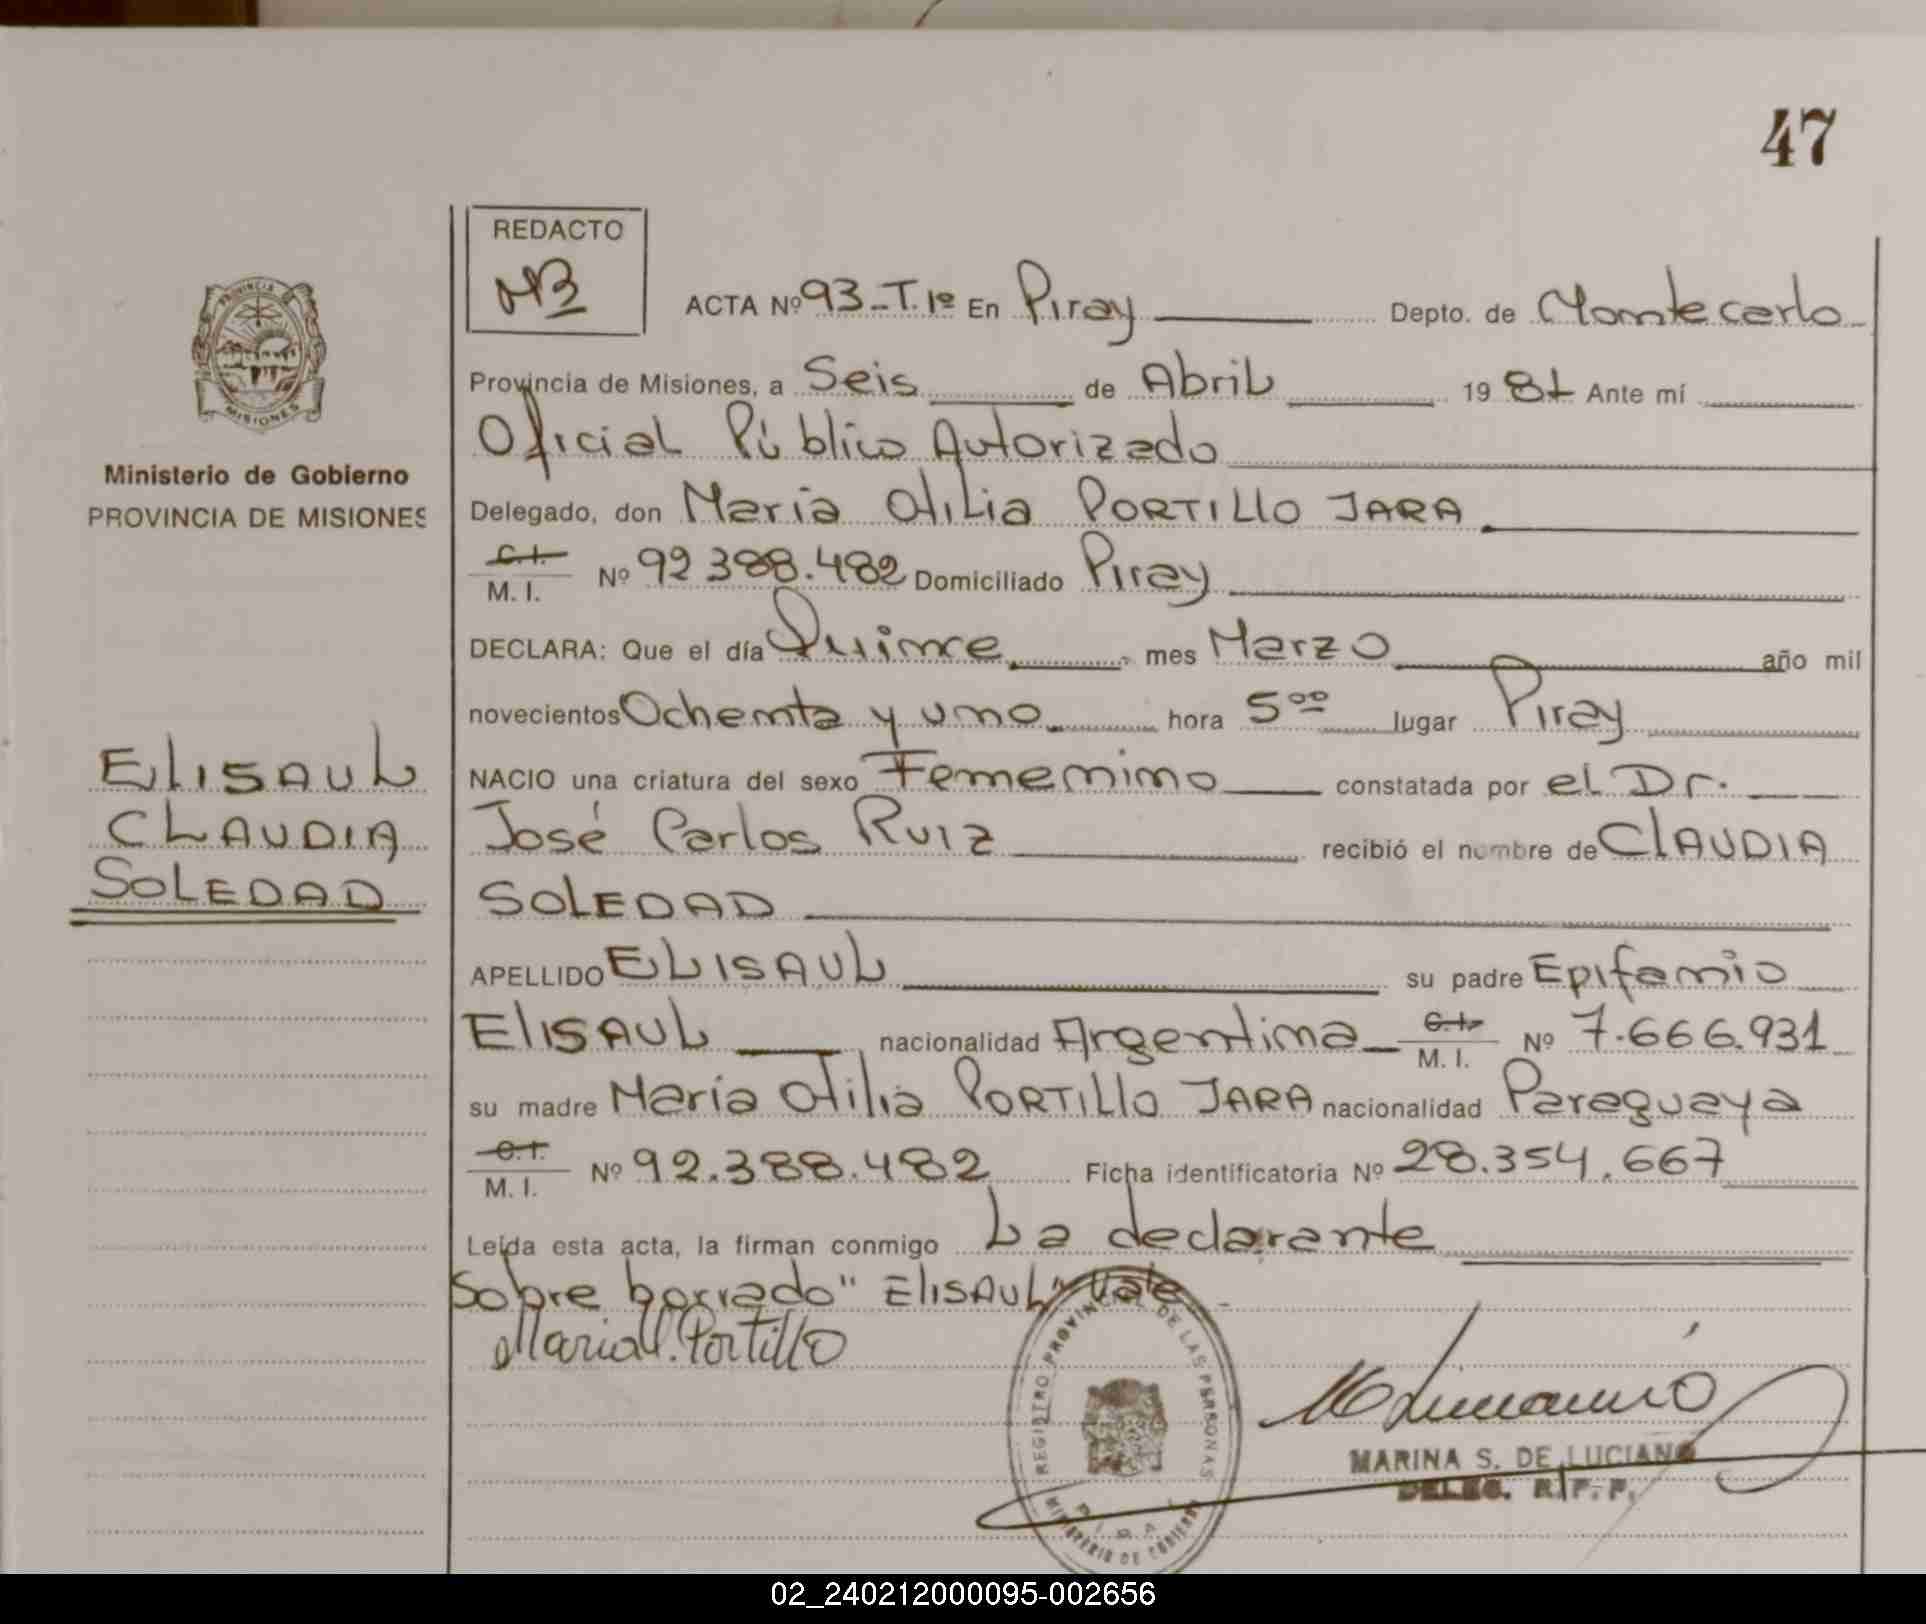 47
REDACTO
ACTA Nº 93-T.1º En Piray Depto. de Montecarlo
Provincia de Misiones, a Seis de Abril 1981 Ante mí
Oficial Público Autorizado
Delegado, don María Otilia PORTILLO JARA
C.I. M. I. Nº 92 388.482 Domiciliado Piray
DECLARA: Que el día Quince mes Marzo año mil
novecientos Ochenta y uno hora 5⁰⁰ lugar Piray
NACIO una criatura del sexo Femenino constatada por el Dr.
José Carlos RUIZ recibió el nombre de CLAUDIA
SOLEDAD
APELLIDO ELISAUL su padre Epifanio
ELISAUL nacionalidad Argentina C.I. M. I. Nº 7.666.931
su madre María Otilia PORTILLO JARA nacionalidad Paraguaya
C.I. M. I. Nº 92.388.482 Ficha identificatoria Nº 28.354.667
Leída esta acta, la firman conmigo La declarante
Sobre borrado "ELISAUL" Vale
Maria O. Portillo
MARINA S. DE LUCIANO
DELEG. R. P. P.
REGISTRO PROVINCIAL DE LAS PERSONAS
MINISTERIO DE GOBIERNO
PROVINCIA DE
MISIONES
Ministerio de Gobierno
PROVINCIA DE MISIONES
ELISAUL
CLAUDIA
SOLEDAD
02_240212000095-002656